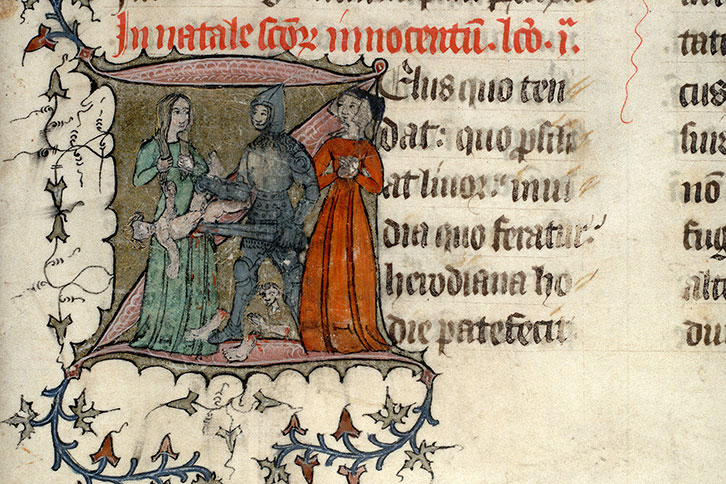 In natale scōꝝ innocentū. lc̄o. i.ª
Zelus quo ten
dat: quo ꝓsili
at liuor: inui
dia quo feratur
herodiana ho
die patefecit
tat
cus
suir
nō
fug
du